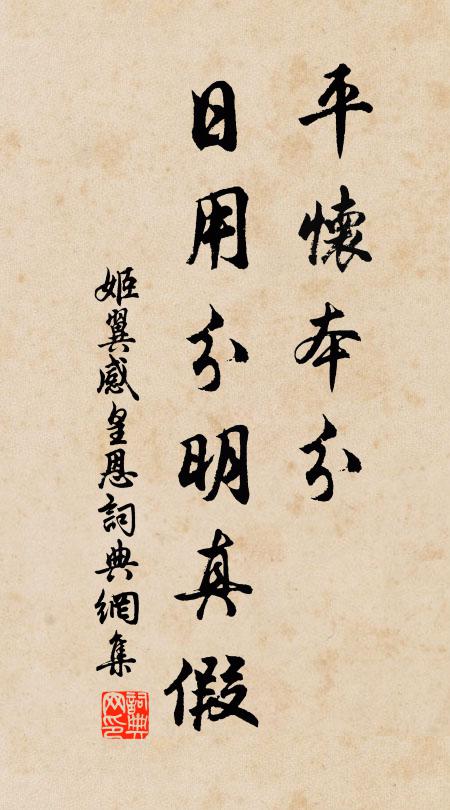 平懷本分
日用分明真假
姬翼感皇恩詞典網集
詞典网印